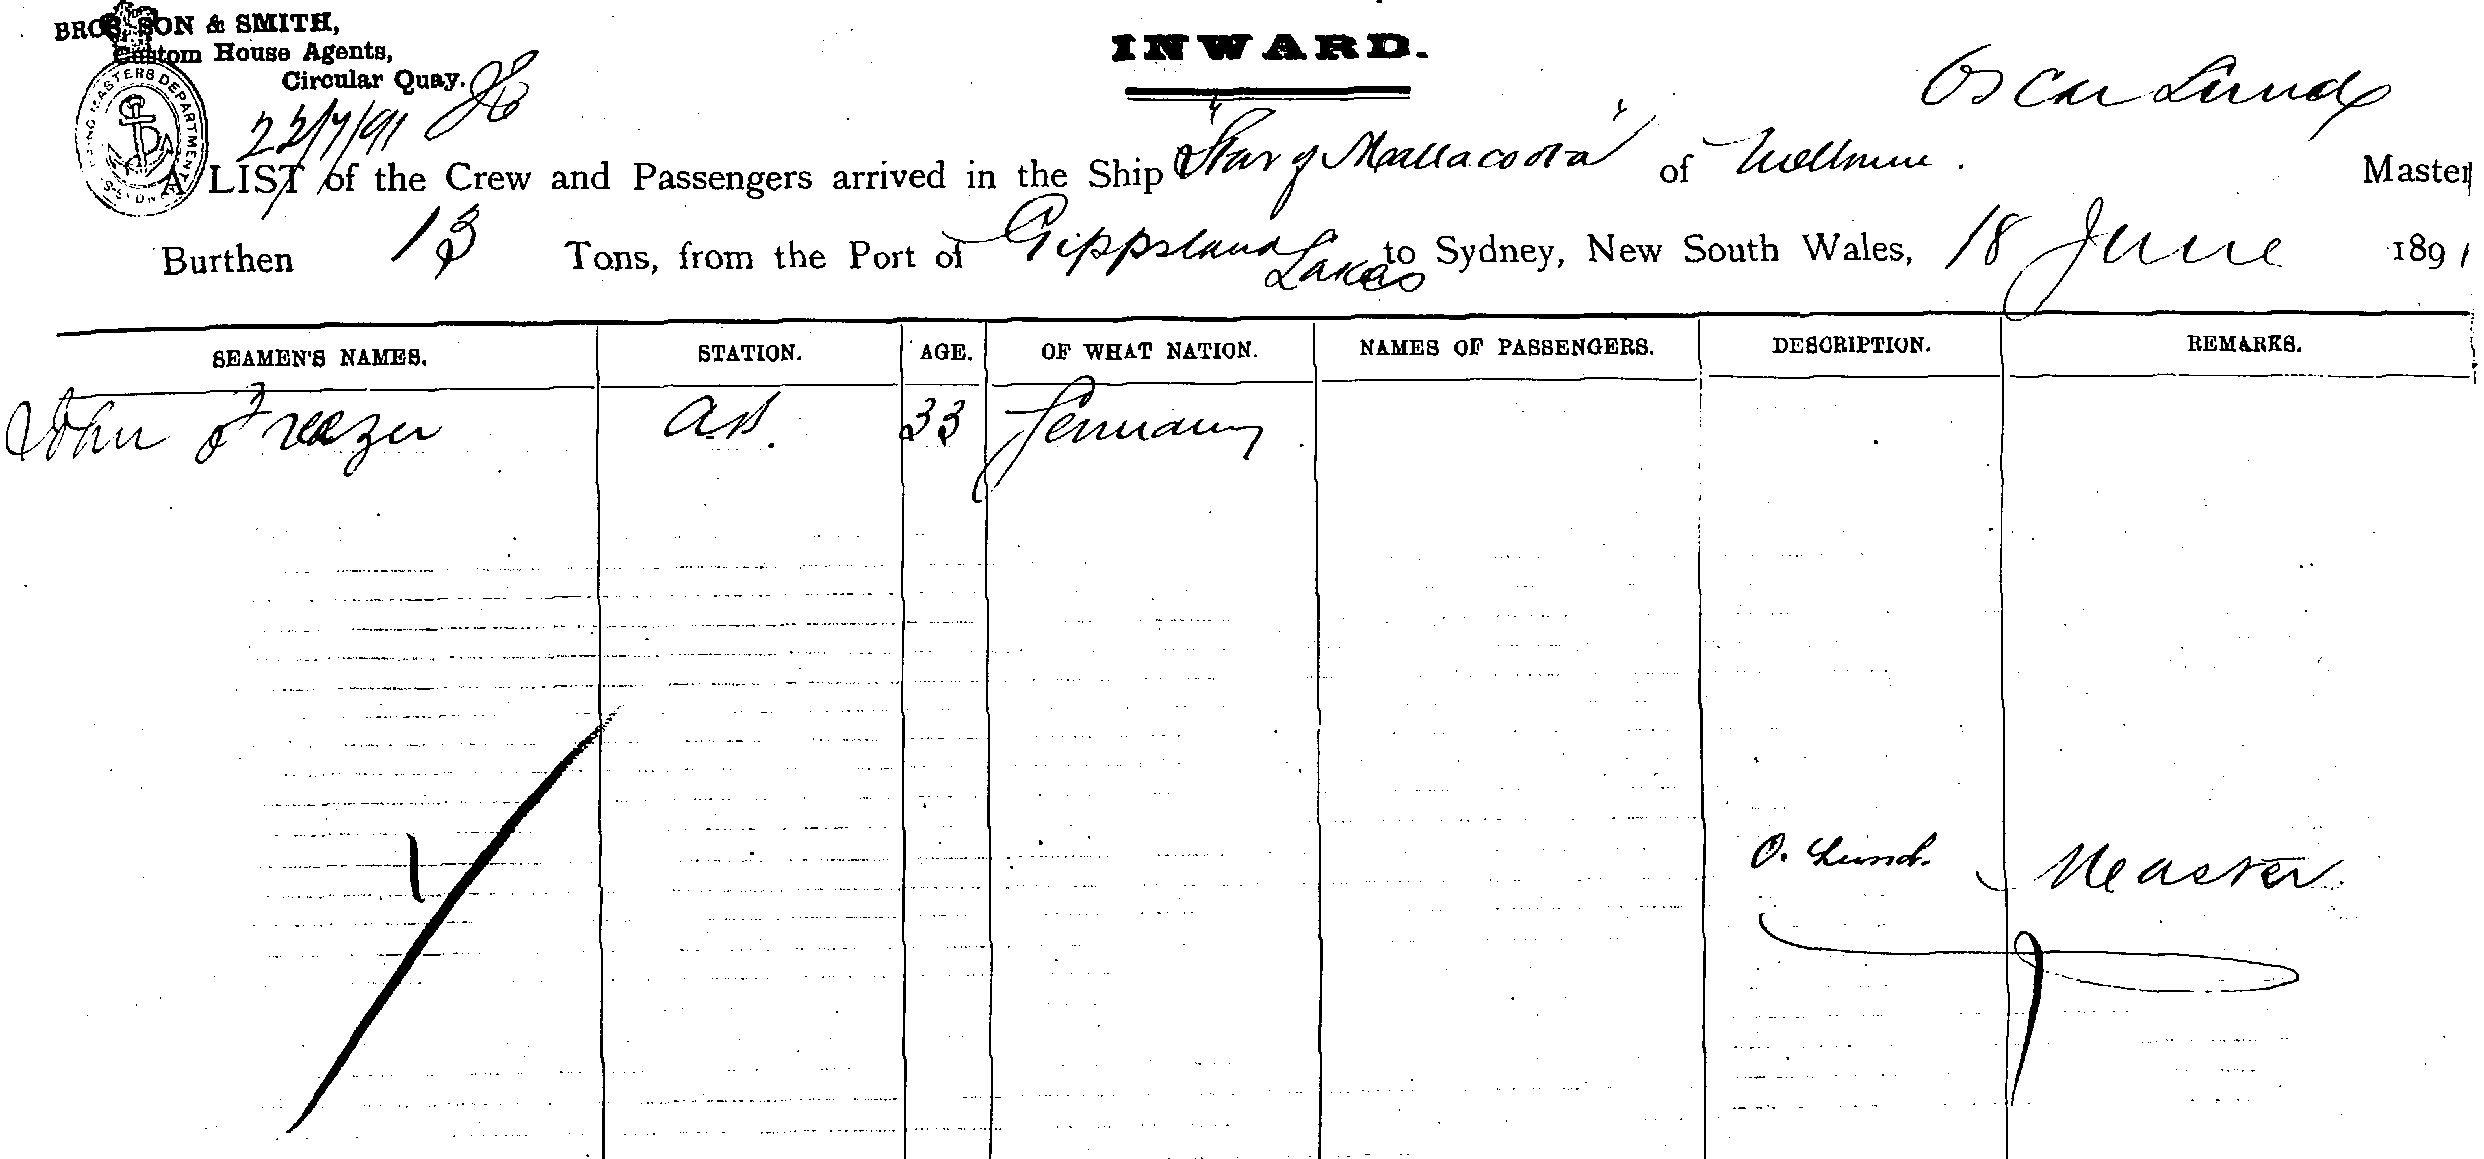 SON & SMITH,
Custom House Agents,
Circular Quay.
22/7/91
INWARD.
Oscar Lund
A LIST of the Crew and Passengers arrived in the Ship "Star of Mallacoota" of Melbourne. Master
Burthen 13 Tons, from the Port of Gippsland Lakes to Sydney, New South Wales, 18 June 1891
SEAMEN'S NAMES. STATION. AGE. OF WHAT NATION. NAMES OF PASSENGERS. DESCRIPTION. REMARKS.
John Freezer A.B. 33 Germany
O. Lund. Master